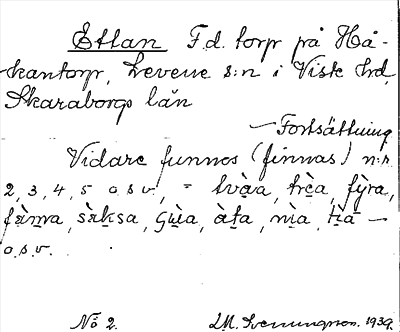 Ettan F.d. torp på Hå-
kantorp, Levene s:n i Viste hrd,
Skaraborgs län
— Fortsättning
Vidare funnos (finnas) n:r
2, 3, 4, 5 o.s.v., = tvὰ̣ra, trὲ̣a, fy�ra,
fὰmra, sὰksa, ɕùa, àta, nìa, tìa —
o.s.v.
No 2. LM. Svenungsson. 1939.